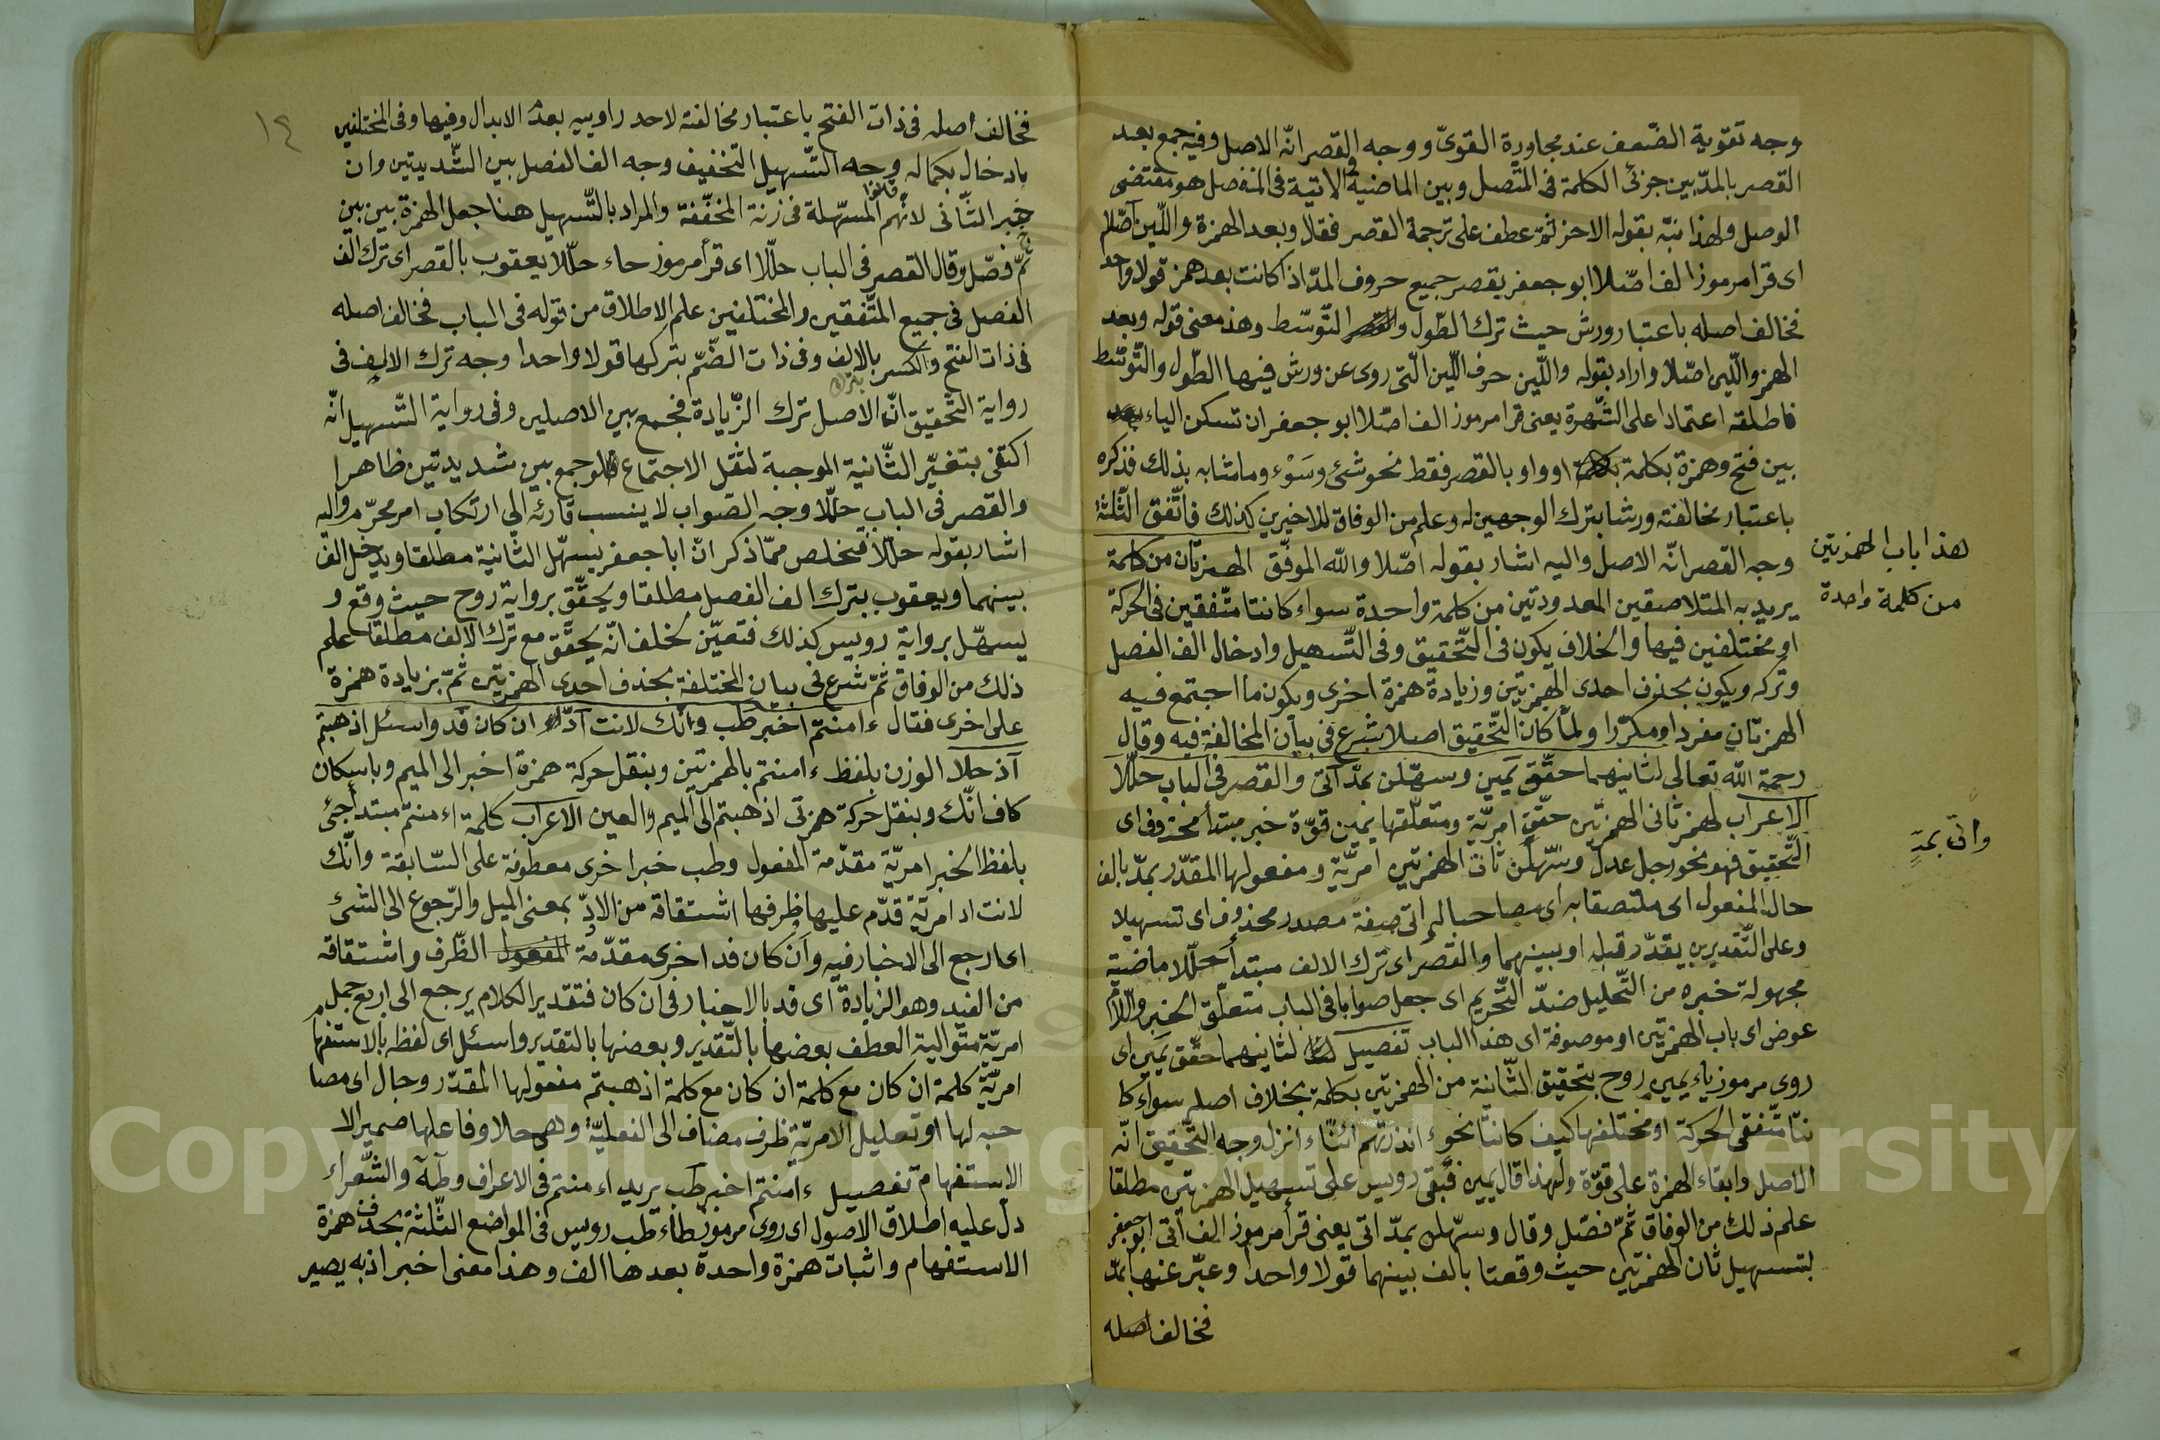 وجه تقوية الضّعف عند مجاورة القوىّ ووجه القصر انّه الاصل وفيه جمع بعد
القصر بالمدّ بين جزئى الكلمة فى المتّصل وبين الماضية والاتية فى المنفصل هو مقتضى
الوصل ولهذا نبّه بقوله الاحز ثمّ عطف على ترجمة القصر فقال وبعد الهمزة واللّين اصّلا
اى قرا مرموز الف اصّلا ابو جعفر بقصر جميع حروف المدّ اذا كانت بعد همز قولا واحد
فخالف اصله باعتبار ورش حيث ترك الطّول والتّوسّط وهذ معنى قوله وبعد
الهمز واللّين اصّلا واراد بقوله واللّين حرف اللّين الّتى روى عن ورش فيها الطّول والتّوسّط
فاطلقه اعتمادا على الشّهرة يعنى قرا مرموز الف اصّلا ابو جعفر ان تسكن الياء
بين فتح وهمزة بكلمة او واو بالقصر فقط نحو شئ وسَوْء وما شابه بذلك فذكره
باعتبار مخالفته ورشا بترك الوجهين له وعلم من الوفاق للاخيرين كذلك فاتّفق الثّلثة
وجه القصر انّه الاصل واليه اشار بقوله اصّلا والله الموفّق الهمزتان من كلمة
يريد به المتلاصقين المعدودتين من كلمة واحدة سواء كانتا متّفقين فى الحركة
او مختلفين فيها والخلاف يكون فى التّحقيق وفى التّسهيل وادخال الف الفصل
وتركه ويكون بحذف احدى الهمزتين وزيادة همزة اخرى ويكون ما اجتمع فيه
الهمزتان مفردا ومكرّرا ولمّا كان التّحقيق اصلا شرع فى بيان المخالفة فيه وقال
رحمة الله تعالى لثانيهما حقّق يمين وسهّلن بمدّ آتى والقصر فى الباب حلّلا
الاعراب لهمز ثانى الهمزتين حقّق امريّة ومتعلّقها يمين قوّة خبر مبتدأ محذوف اى
التّحقيق فهو نحو رجل عدل وسّهلن ثانى الهمزتين امريّة ومفعولها المقدّر بمدّ بالف
حال المفعول اى ملتصقا به اى مصاحبا له اتى صفة مصدر محذوف اى تسهيلا
وعلى التّقديرين يقدّر قبله او بينهما والقصر اى ترك الالف مبتدأ حلّلا ماضية
مجهولة خبره من التّحليل ضدّ التّحريم اى جعل صوابا فى الباب متعلّق الخبر واللّام
عوض اى باب الهمزتين او موصوفة اى هذا الباب تفصيل لثانيهما حقّق يمين اى
روى مرموز ياء يمين روح بتحقيق الثّانية من الهمزتين بكلمة بخلاف اصله سواء كا
نتا متّفقى الحركة او مختلفها كيف كانتا نحو ءانذرتهم ائنّا ءانزل وجه التّحقيق انّه
الاصل وابقاء الهمزة على قوّة ولهذا قال يمين فبقى رويس على تسهيل الهمزتين مطلقا
علم ذلك من الوفاق ثمّ فصّل وقال وسهّلن بمدّ اتى يعنى قرأ مرموز الف آتى ابو جعفر
بتسهيل ثان الهمزتين حيث وقعتا بالف بينهما قولا واحدا وعبّر عنها بمدّ
فخالف اصله
هذا باب الهمزتين
من كلمة واحدة
واتى بمدّ
١٤
فخالف اصله فى ذات الفتح باعتبار مخالفته لاحد راوييه بعدم الابدال وفيها وفى المختلفين
بادخال بكماله وجه التّسهيل التخفيف وجه الف الفصل بين الشّديدتين وان
خبر الثّانى لانّهم قالوا المسهّلة فى زنة المخفّفة والمراد بالتّسهيل هنا جعل الهمزة بين بين
ثمّ فصّل وقال القصر فى الباب حلّلا اى قرأ مرموز حاء حلّلا يعقوب بالقصر اى ترك الف
الفصل فى جميع المتّفقين والمختلفين علم الاطلاق من قوله فى الباب فخالف اصله
فى ذات الفتح والكسر بالالف وفى ذات الضّمّ بتركها قولا واحدا وجه ترك الالف فى
رواية التّحقيق انّه الاصل ترك الزّيادة فجمع بين الاصلين وفى رواية التّسهيل انّه
اكتفى بتغيّر الثّانية الموجبة لثقل الاجتماع فلو جمع بين شديدتين ظاهرا
والقصر فى الباب حلّلا وجه الصّواب لا ينسب قارئه الى ارتكاب امر محرّم واليه
اشار بقوله حلّلا فتخلص ممّا ذكر انّ ابا جعفر يسهّل الثانية مطلقا ويدخل الف
بينهما ويعقوب بترك الف الفصل مطلقا ويحقّق برواية روح حيث وقع و
يسهّل برواية رويس كذلك فتعيّن لخلف انّه يحقّق مع ترك الالف مطلقا علم
ذلك من الوفاق ثمّ شرع فى بيان المختلفة بحذف احدى الهمزتين ثمّ بزيادة همزة
على اخرى فقال ءامنتم اخبر طب وانّك لانت ادّ ان كان فد واسئل اذهبتم
آذ حلا الوزن بلفظ ءامنتم بالهمزتين وبنقل حركة همزة اخبر الى الميم وباسكان
كاف انّك وبنقل حركة همزتى اذهبتم الى الميم والعين الاعراب كلمة اءمنتم مبتدأ جئ
بلفظ الخبر امريّة مقدّمة المفعول وطب خبر اخرى معطوفة على السّابقة وانّك
لانت اد امريّة قدّم عليها ظرفها اشتقاقه من الادّ بمعنى الميل والرّجوع الى الشئ
اى ارجع الى الاخبار فيه وان كان فد اخرى مقدّمة الظّرف واشتقاقه
من الفيد وهو الزيادة اى قد بالاخبار فى ان كان فتقدير الكلام يرجع الى اربع جمل
امريّة متوالية العطف بعضها بالتّقدير وبعضها بالتقدير واسئل اى لفظ بالاستفها
امريّة كلمة ان كان مع كلمة ان كان مع كلمة اذهبتم مفعولها المقدّر وحال اى مصا
حبه لها او تعليل الامريّة ظرف مضاف الى الفعليّة وهى حلا وفاعلها ضمير الا
الاستفهام تفصيل ءامنتم اخبر طب يريد اءمنتم فى الاعراف وطه والشّعراء
دلّ عليه اطلاق الاصول اى روى مرموز طاء طب رويس فى المواضع الثّلثة بحذف همزة
الاستفهام واثبات همزة واحدة بعدها الف وهذا معنى اخبر اذ به يصير
Copyright © King Saud University